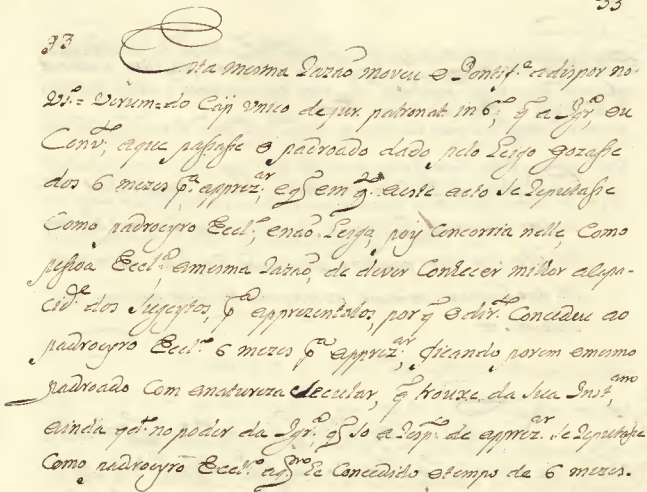 33
93 Esta mesma razaõ moveu o Pontif.e a dispor no
Vs.= Verum= do Cap. Unico de jur. patronat. in 6.º, q̃ a Igr.ª, ou
Conv.to, a que passasse o padroado dado pelo Leigo gozasse
dos 6 mezes p.ª apprez.ar, e q̃ em q.to a este acto se reputasse
Como padroeyro Eccl.º, e naõ Leigo, poys Concorria nelle, Como
pessoa Eccl.ª, a mesma razaõ, de dever Conhecer milhor a Capa-
cid.e dos Sugeytos, p.ª apprezentalos, por q̃ o dir.to Concedeu ao
padroeyro Eccl.º 6 mezes p.ª apprez.ar, ficando porem o mesmo
padroado Com a natureza Secular, q̃ trouxe da sua Inst.am
ainda q.do no poder da Igr.ª, q̃ só a resp.to de apprez.ar se reputasse
Como padroeyro Eccl.º a q.m he Concedido o tempo de 6 mezes.